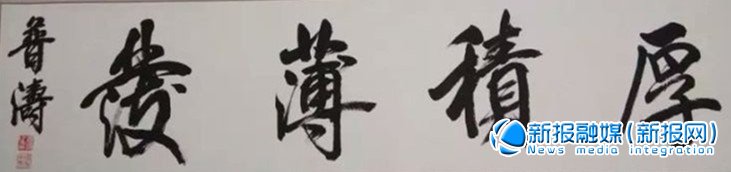 厚積薄發
普濤
新报融媒(新报网)
News media integration